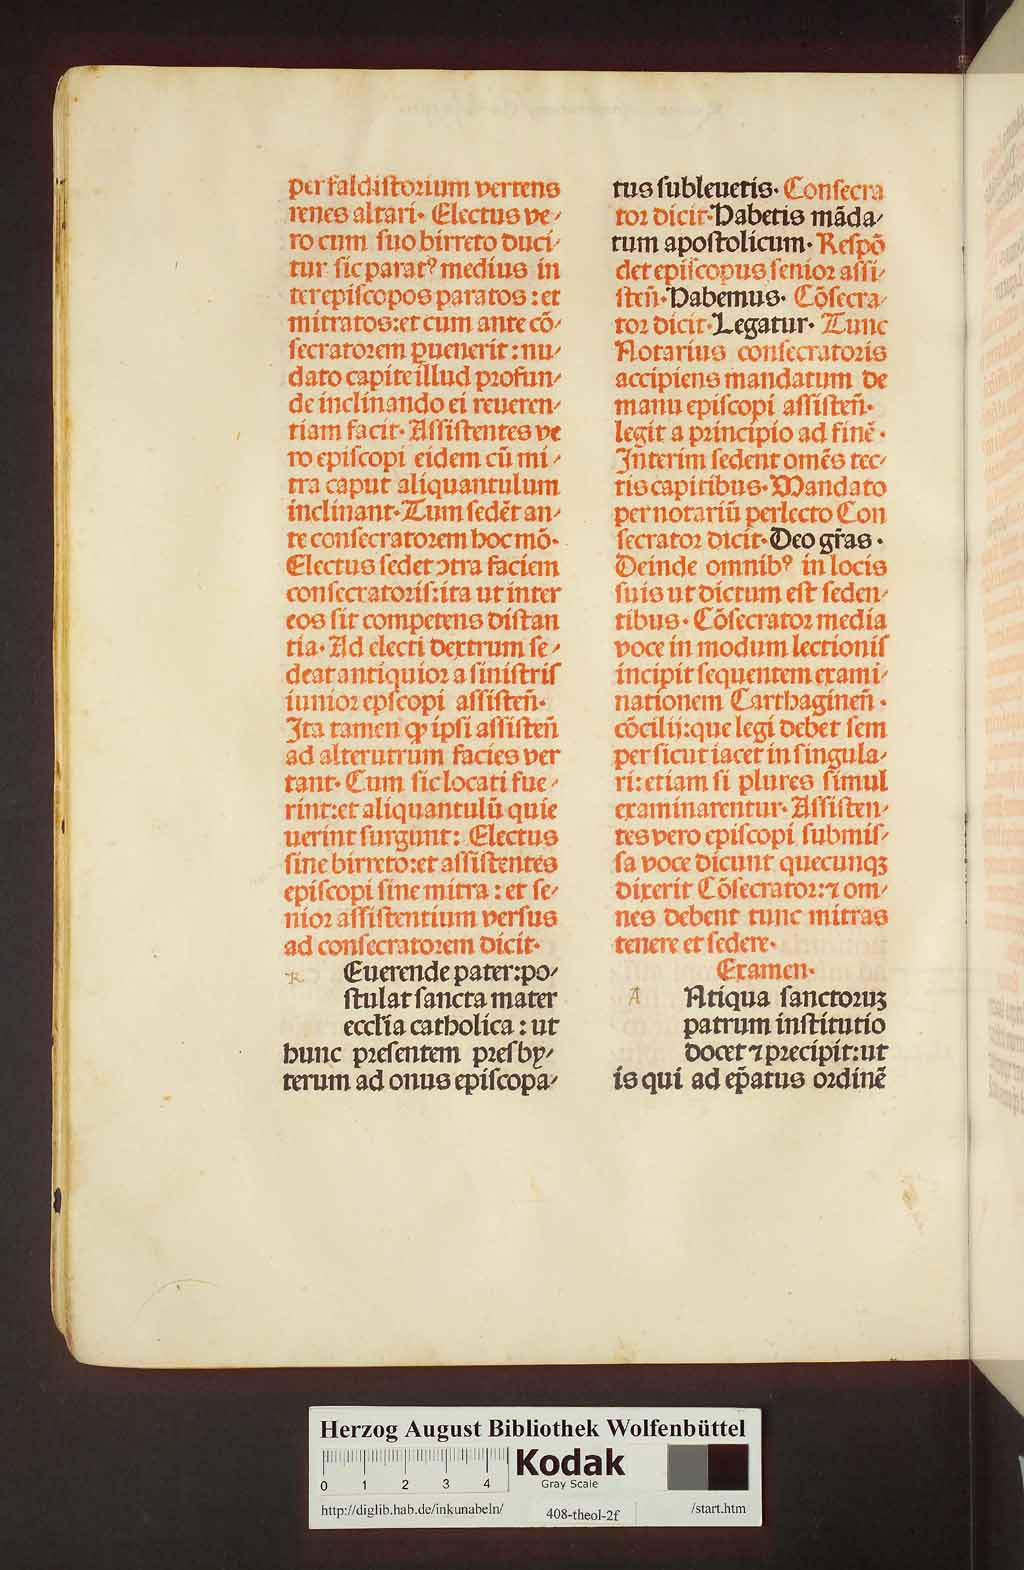 per faldistorium vertens
renes altari. Electus ve-
ro cum suo birreto duci-
tur sic paratꝰ medius in
ter episcopos paratos : et
mitratos: et cum ante cō-
secratorem ꝑuenerit : nu-
dato capite illud profun-
de inclinando ei reueren-
tiam facit. Assistentes ve
ro episcopi eidem cū mi-
tra caput aliquantulum
inclinant. Tum sedēt an-
te consecratorem hoc mō.
Electus sedet ↄtra faciem
consecratoris: ita ut inter
eos sit competens distan
tia. Ad electi dextrum se-
deat antiquior a sinistris
iunior epscopi assisten̄.
Ita tamen ꝙ ipsi assisten̄
ad alterutrum facies ver
tant. Cum sic locati fue-
rint: et aliquantulū quie
uerint surgunt: Electus
sine birreto: et assistentes
episcopi sine mitra : et se-
nior assistentium versus
ad consecratorem dicit.
R Euerende pater: po-
stulat sancta mater
eccl̄ia catholica : ut
hunc presentem presby-
terum ad onus episcopa-
tus subleuetis. Consecra
tor dicit. Habetis māda-
tum apostolicum. Respō
det episcopus senior assi-
sten̄. Habemus. Cōsecra-
tor dicit. Legatur. Tunc
Notarius consecratoris
accipiens mandatum de
manu episcopi assisten̄.
legit a principio ad finē.
Interim sedent omēs tec-
tis capitibus. Mandato
per notariū perlecto Con
secrator dicit. Deo gr̄as.
Deinde omnibꝰ in locis
suis ut dictum est seden-
tibus. Cōsecrator media
voce in modum lectionis
incipit sequentem exami-
nationem Carthaginen̄.
cōcilij: que legi debet sem
per sicut iacet in singula-
ri: etiam si plures simul
examinarentur. Assisten-
tes vero episcopi submis-
sa voce dicunt quecunqꝫ
dixerit Cōsecrator: ⁊ om-
nes debent tunc mitras
tenere et sedere.
Examen.
A Ntiqua sanctoruꝫ
patrum institutio
docet ⁊ precipit: ut
is qui ad ep̄atus ordinē
Herzog August Bibliothek Wolfenbüttel
0 1 2 3 4
Kodak
Gray Scale
http://diglib.hab.de/inkunabeln/ 408-theol-2f /start.htm